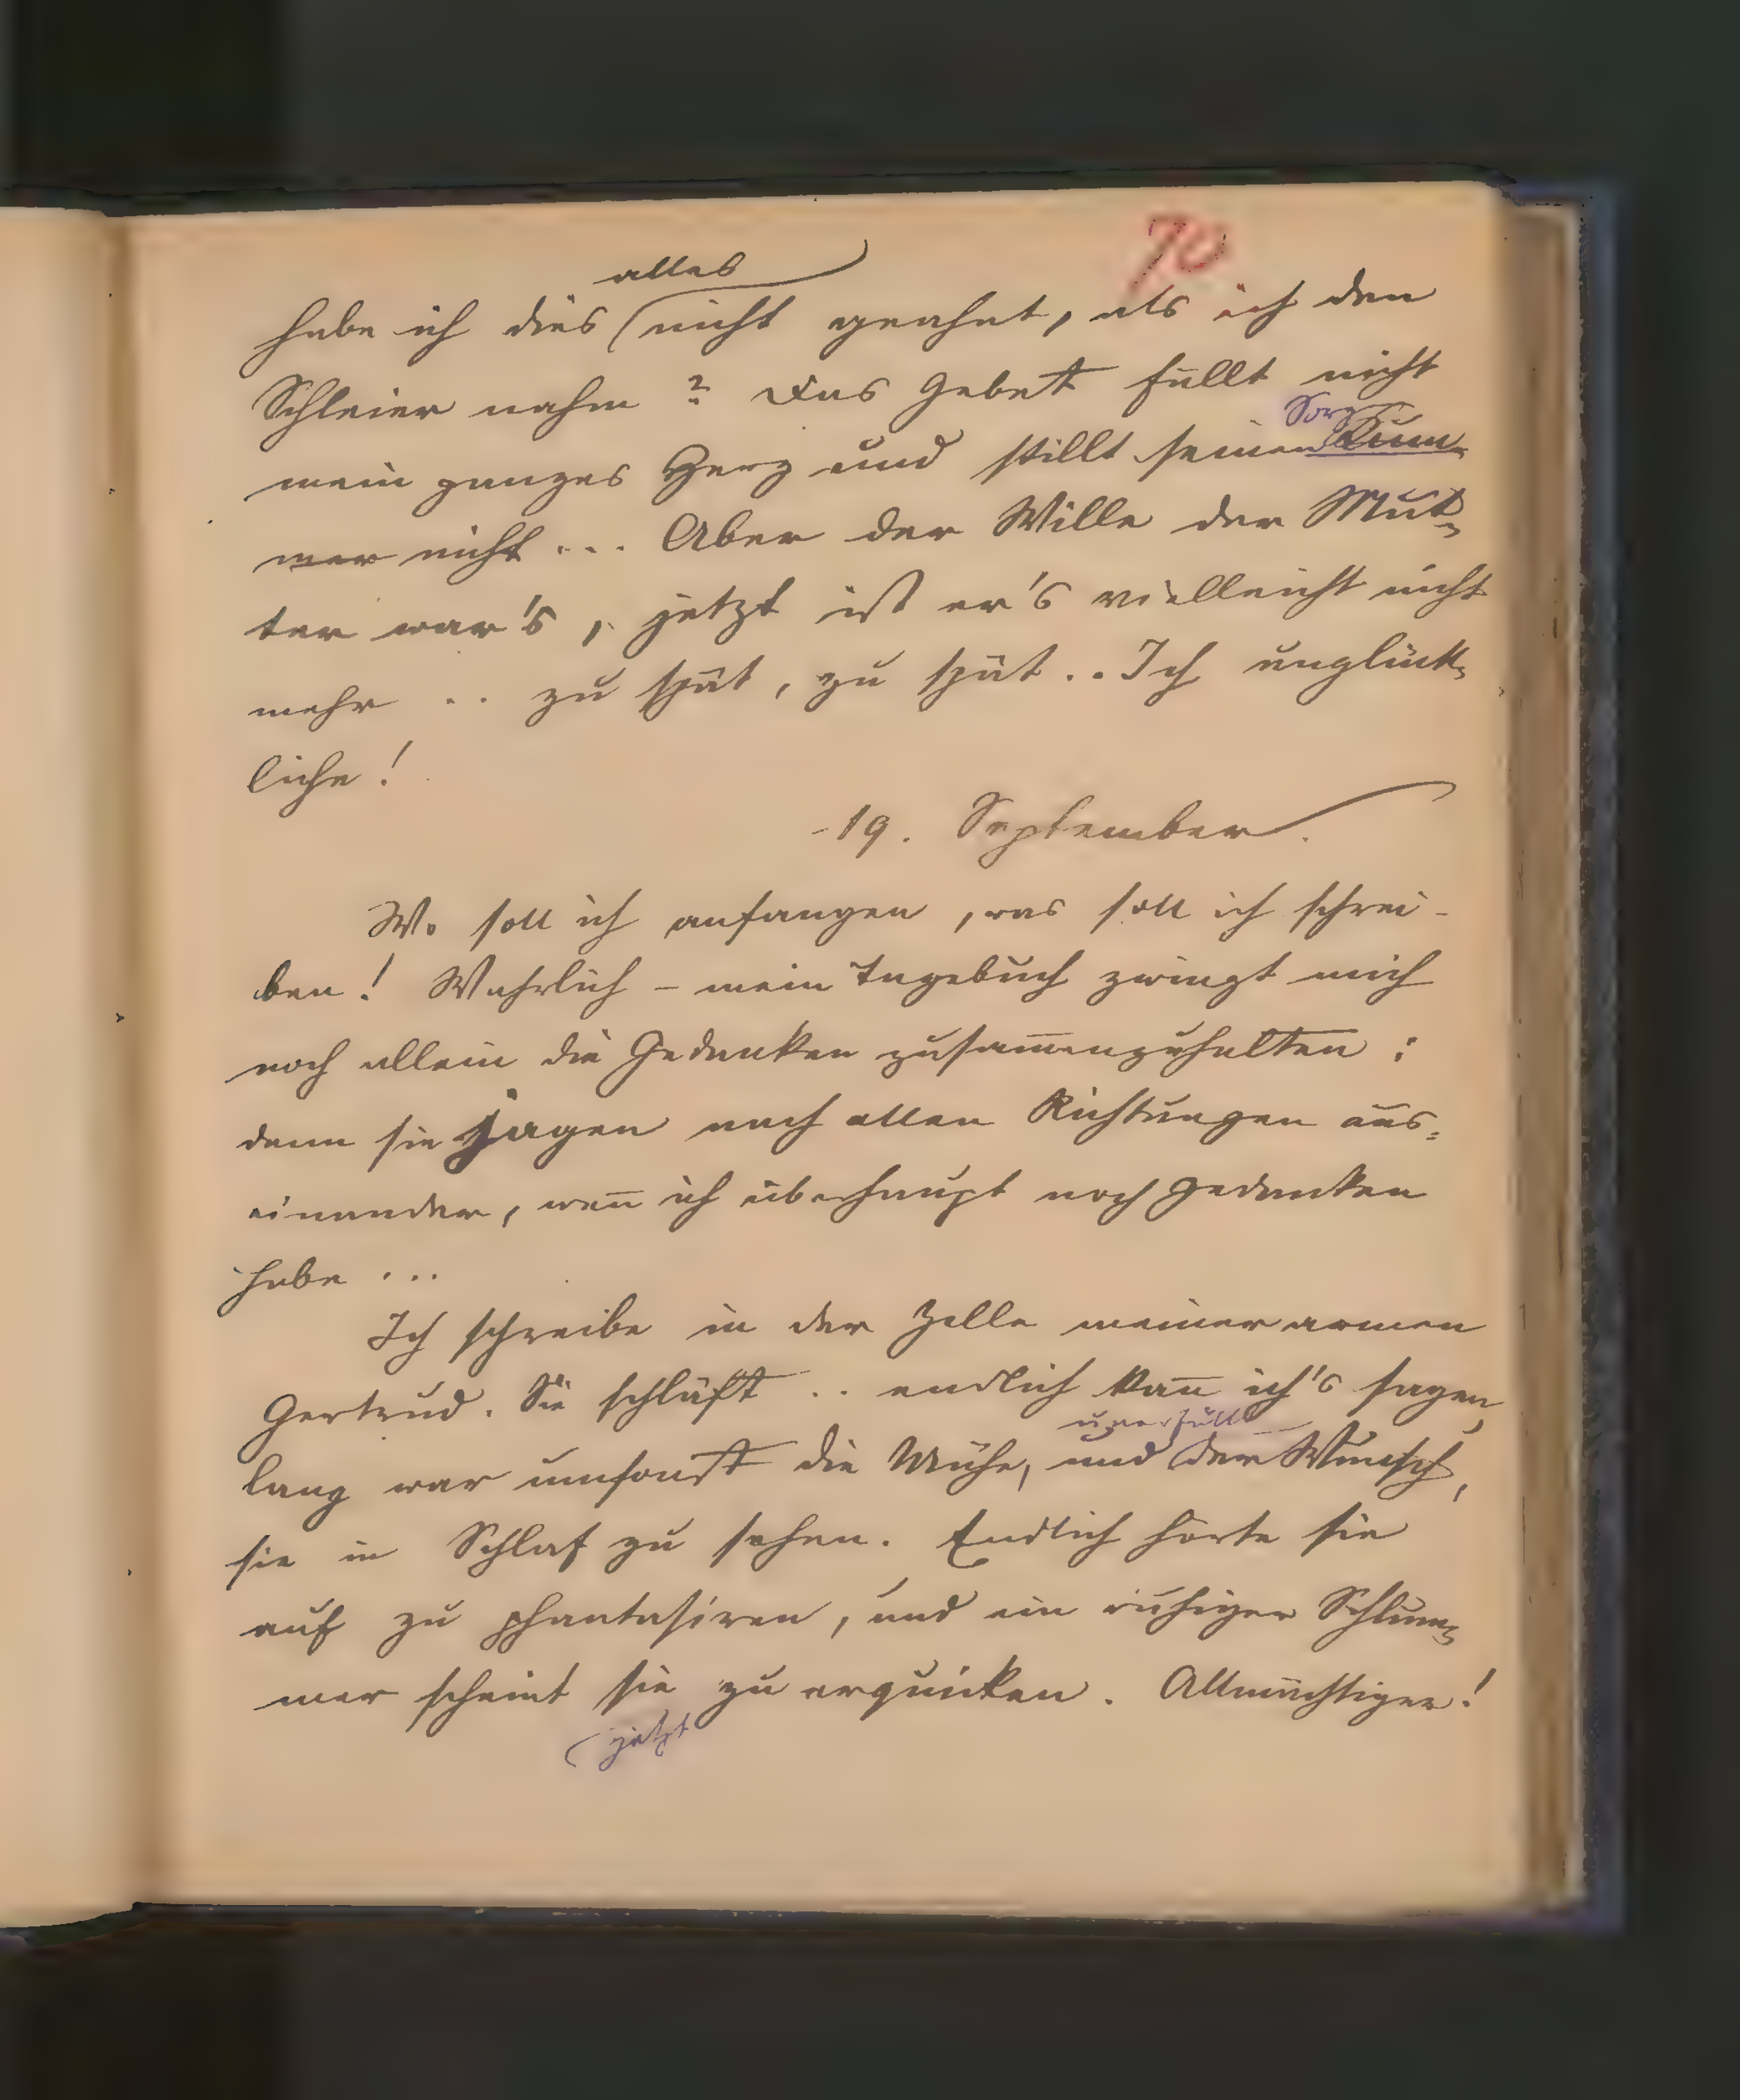 70
alles
habe ich dies nicht geahnt, als ich den
Schleier nahm? Das Gebet füllt nicht
Sorge
mein ganzes Herz und stillt seinen Kum-
mer nicht ... Aber der Wille der Mut-
ter war's, jetzt ist er's vielleicht nicht
mehr .. zu spät, zu spät .. Ich unglück-
liche!
19. September.
Wo soll ich anfangen, was soll ich schrei-
ben! Wahrlich – mein Tagebuch zwingt mich
noch allein die Gedanken zusam̅enzuhalten:
denn sie jagen nach allen Richtungen aus-
einander, wen̅ ich überhaupt noch Gedanken
habe ...
Ich schreibe in der Zelle meiner armen
Gertrud. Sie schläft .. endlich kan̅ ich's sagen,
unerfüllt
lang war umsonst die Mühe, und der Wunsch,
sie in Schlaf zu sehen. Endlich hörte sie
auf zu phantasiren, und ein ruhiger Schlum-
mer scheint sie zu erquicken. Allmächtiger!
jetzt